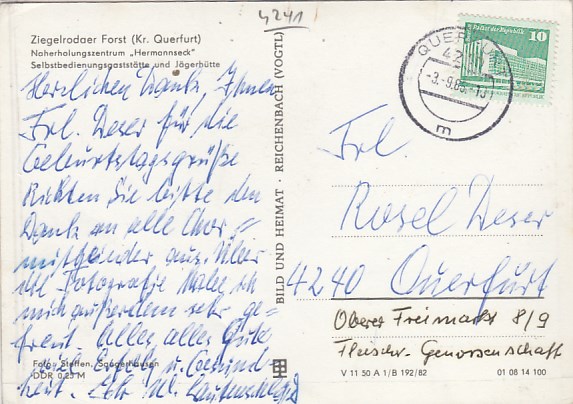 4241
Ziegelrodaer Forst (Kr. Querfurt)
Naherholungszentrum „Hermannseck"
Selbstbedienungsgaststätte und Jägerhütte
Herzlichen Dank, Ihnen
Frl. Deser für die
Geburtstagsgrüße
Richten Sie bitte den
Dank an alle Chor=
mitglieder aus. Über
die Fotografie habe ich
mich außerdem sehr ge-
freut. Alles, alles Gute
Foto: Steffen, Sangerhausen
DDR 0,25 M
BILD UND HEIMAT · REICHENBACH (VOGTL)
QUERFURT
10
m
Frl.
Rosel Deser
4240 Querfurt
Oberer Freimarkt 8/9
Fleischr.-Genossenschaft
V 11 50 A 1/B 192/82
01 08 14 100